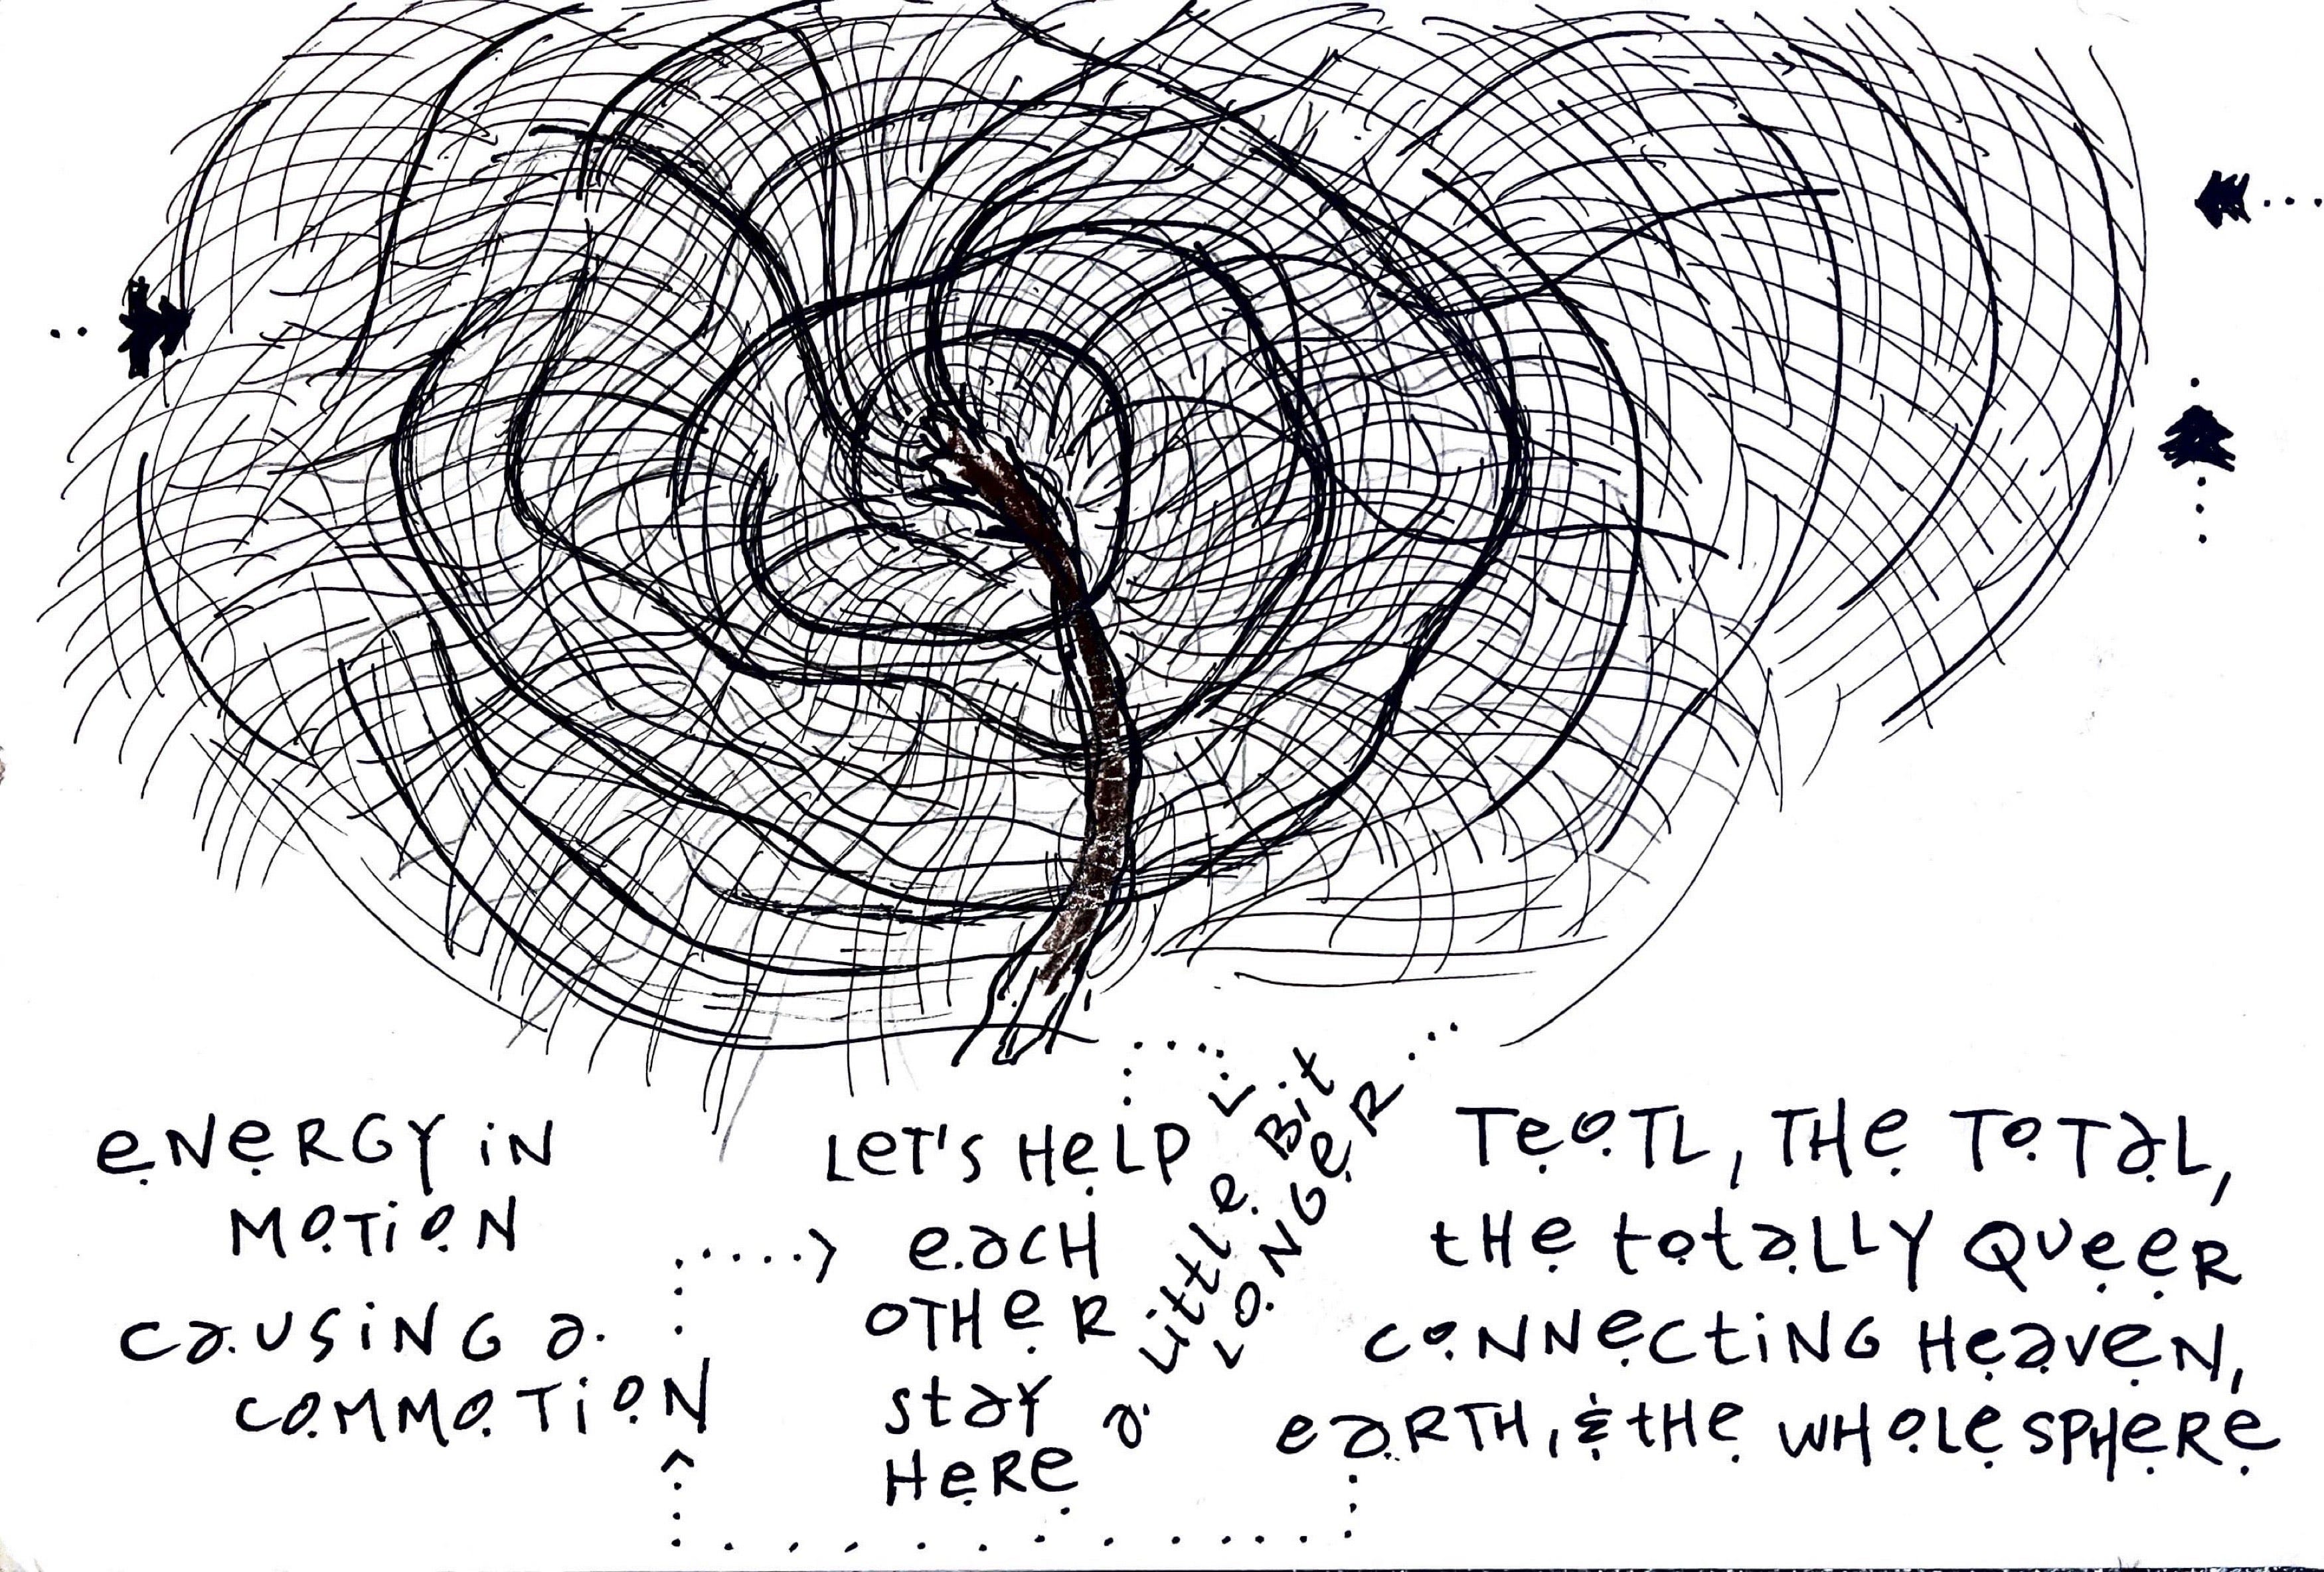 eNeRGY iN
MoTioN
caUSiNG a
coMMoTioN
Let's HeLP
eacH
oTHeR
stay
HeRe a
LittLe Bit
LoNGeR
TeoTL, THe ToTaL,
tHe totaLLY QUeeR
coNNectiNG Heaven,
eaRTH, & tHe WHoLe SPHeRe